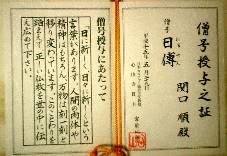 僧号授与之証
関口 順殿
僧号
日傳
平成十五年五月
僧号授与にあたって
「日に新しく、日々に新し」という
言葉があります。人間の肉体や
精神はもちろん、万物は刻一刻と
移り変わっています。このことわりを
踏まえて、正しい仏教を世の中に伝
え広めて下さい。